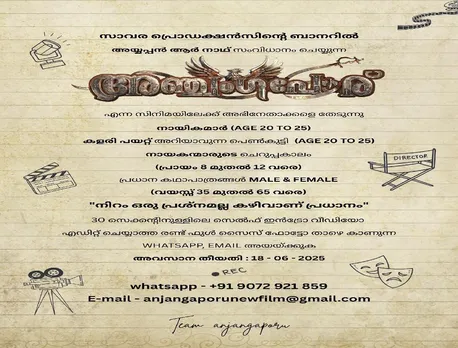 സാവര പ്രൊഡക്ഷൻസിന്റെ ബാനറിൽ
അയ്യപ്പൻ ആർ നാഥ് സംവിധാനം ചെയ്യുന്ന
അഞ്ചാങ്കപോര്
എന്ന സിനിമയിലേക്ക് അഭിനേതാക്കളെ തേടുന്നു
നായികമാർ (AGE 20 TO 25)
കളരി പയറ്റ് അറിയാവുന്ന പെൺകുട്ടി (AGE 20 TO 25)
നായകന്മാരുടെ ചെറുപ്പകാലം
(പ്രായം 8 മുതൽ 12 വരെ)
പ്രധാന കഥാപാത്രങ്ങൾ MALE & FEMALE
(വയസ്സ് 35 മുതൽ 65 വരെ)
"നിറം ഒരു പ്രശ്നമല്ല കഴിവാണ് പ്രധാനം"
30 സെക്കന്റിനുള്ളിലെ സെൽഫ് ഇൻട്രോ വീഡിയോ
എഡിറ്റ് ചെയ്യാത്ത രണ്ട് ഫുൾ സൈസ് ഫോട്ടോ താഴെ കാണുന്ന
WHATSAPP, EMAIL അയയ്ക്കുക
അവസാന തീയതി : 18 - 06 - 2025
REC
DIRECTOR
whatsapp - +91 9072 921 859
E-mail - anjangaporunewfilm@gmail.com
Team anjangaporu